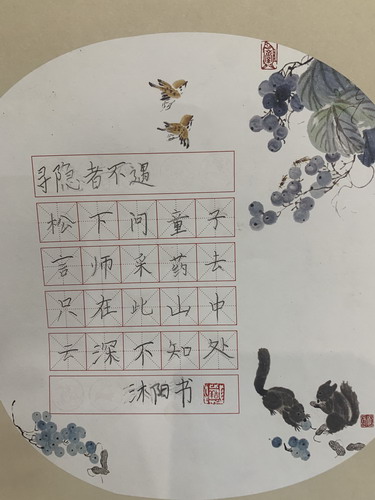 寻隐者不遇
松下问童子
言师采药去
只在此山中
云深不知处
沐阳书